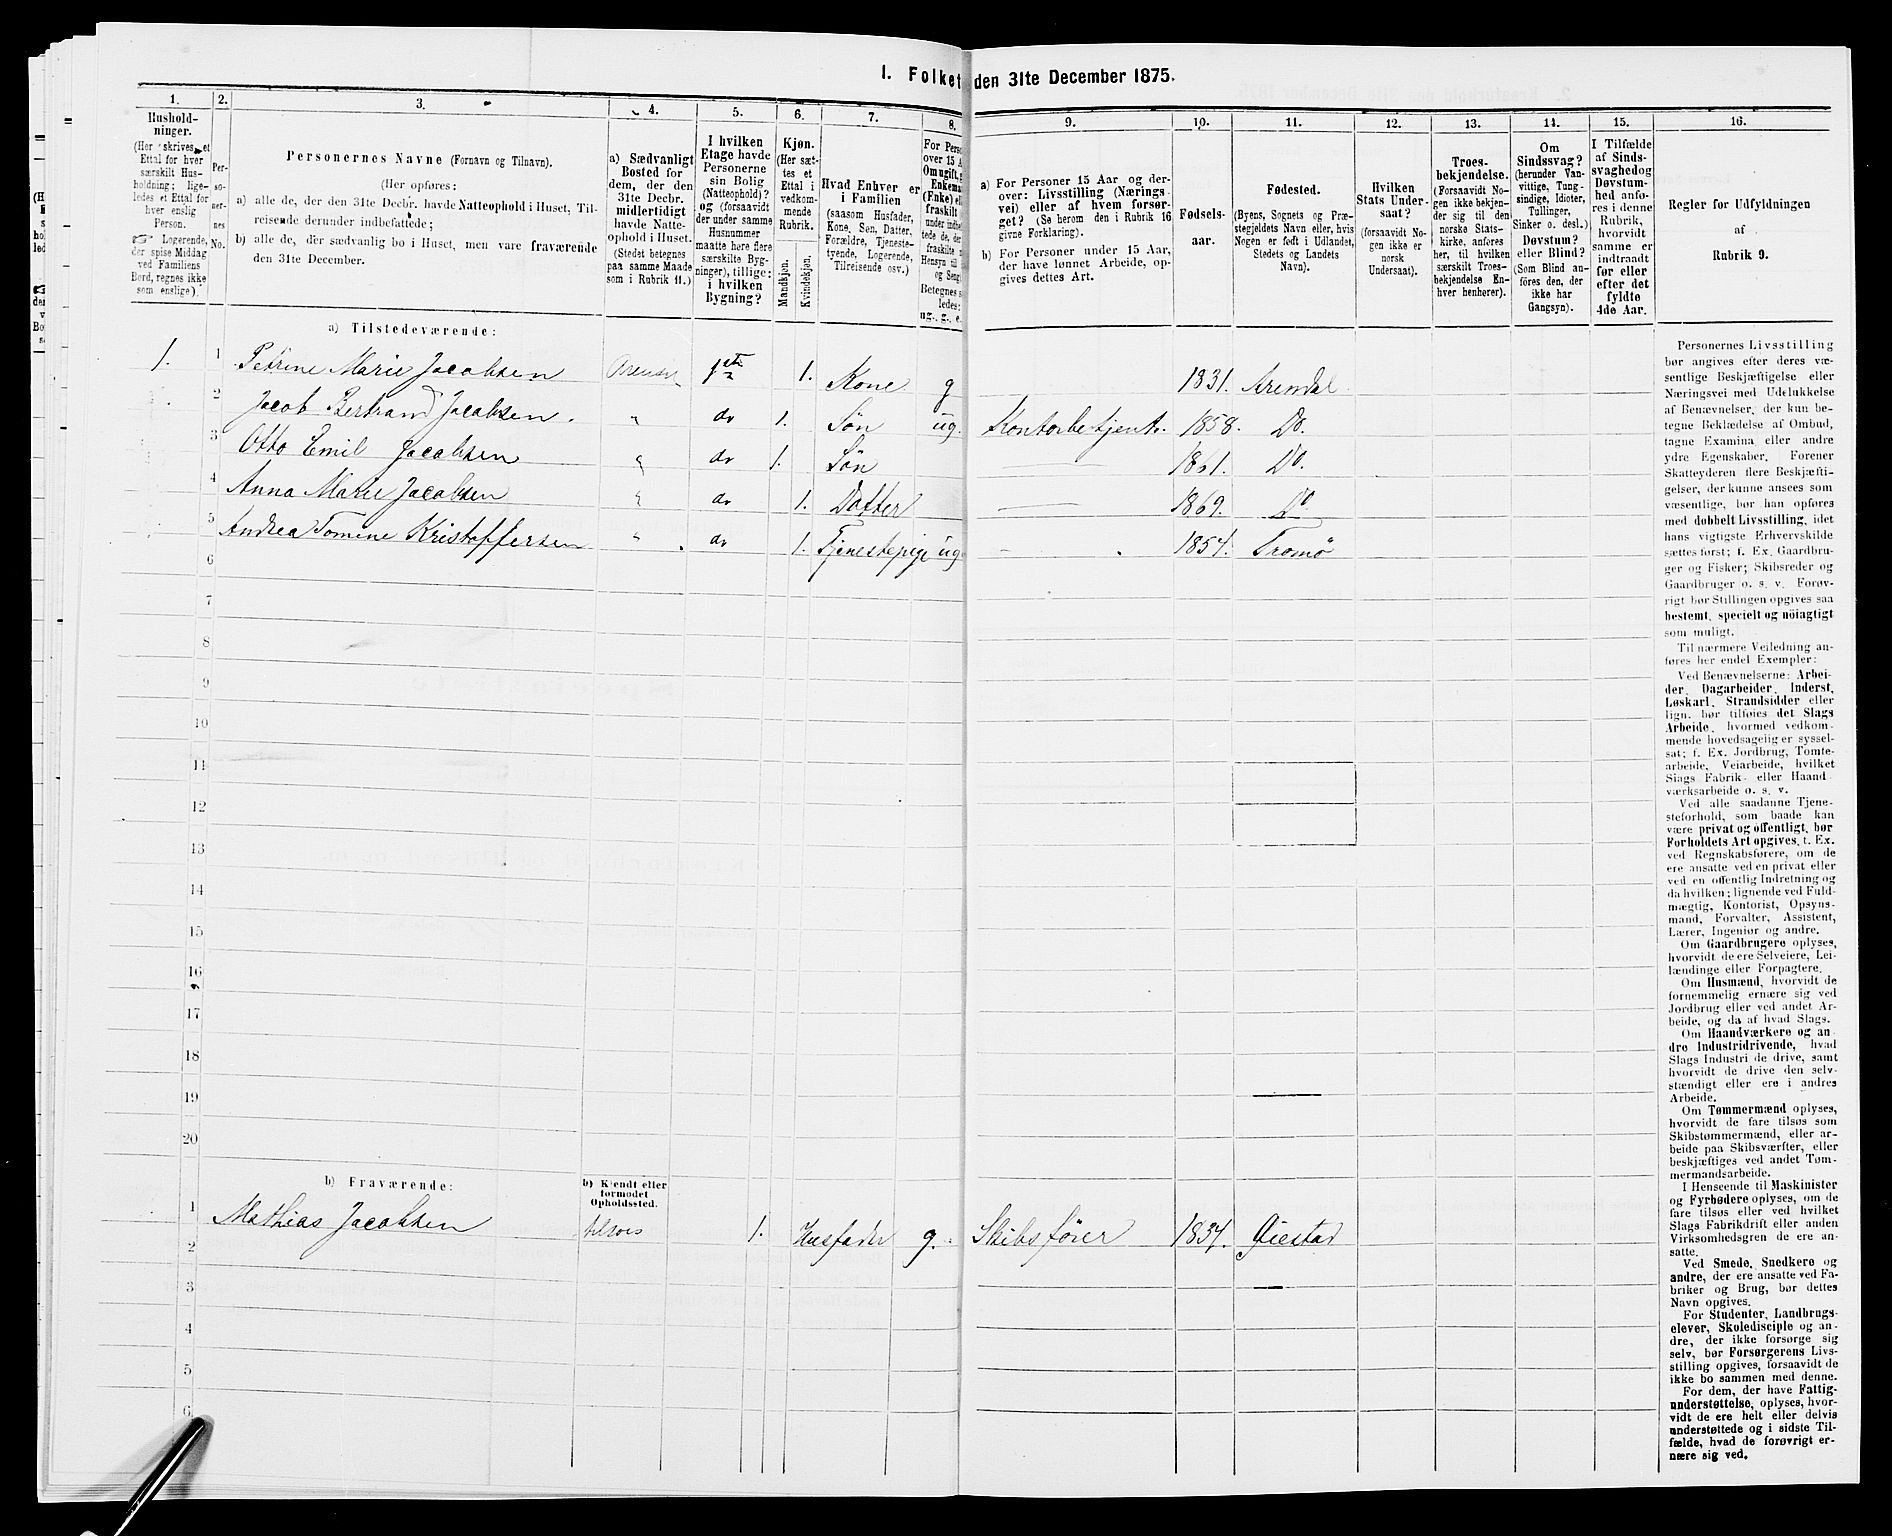 I. Folket den 31te December 1875.
1. 2. 3. 4. 5. 6. 7. 8. 9. 10. 11. 12. 13. 14. 15. 16.
Hushold-
ninger.
(Her skrives et
Ettal for hver
særskilt Hus-
holdning; lige-
ledes et Ettal for
hver enslig
Person.
Logerende,
der spise Middag
ved Familiens
Bord, regnes ikke
som enslige).
Per-
so-
ner-
nes
No.
Personernes Navne (Fornavn og Tilnavn).
(Her opføres:
a) alle de, der den 31te Decbr. havde Natteophold i Huset, Til-
reisende derunder indbefattede;
b) alle de, der sædvanlig bo i Huset, men vare fraværende
den 31te December.
a) Sædvanligt
Bosted for
dem, der den
31te Decbr.
midlertidigt
havde Natte-
ophold i Huset.
(Stedet betegnes
paa samme Maade
som i Rubrik 11.)
I hvilken
Etage havde
Personerne
sin Bolig
(Natteophold)?
og (forsaavidt
der under samme
Husnummer
maatte høre flere
særskilte Byg-
ninger), tillige:
i hvilken
Bygning?
Kjøn.
(Her sæt-
tes et
Ettal i
vedkom-
mende
Rubrik.
Mandkjøn.
Kvindekjøn.
Hvad Enhver er
i Familien
(saasom Husfader,
Kone, Søn, Datter,
Forældre, Tjeneste-
tyende, Logerende,
Tilreisende osv.)
For Pers
over 15 A
Om ugift, g
Enkema
(Enke) el
fraskilt
under indbe
tede de, der
fraskilte
Hensyn til
og Seng
Betegnes s
ledes:
ug., g., e.
a) For Personer 15 Aar og der-
over: Livsstilling (Nærings-
vei) eller af hvem forsør-
get? (Se herom den i Rubrik 16
givne Forklaring).
b) For Personer under 15 Aar,
der have lønnet Arbeide, op-
gives dettes Art.
Fødsels-
aar.
Fødested.
(Byens, Sognets og Præ-
stegjeldets Navn eller, hvis
Nogen er født i Udlandet,
Stedets og Landets
Navn).
Hvilken
Stats Under-
saat?
(forsaavidt No-
gen ikke er
norsk
Undersaat).
Troes-
bekjendelse.
(Forsaavidt No-
gen ikke bekjen-
der sig til den
norske Stats-
kirke, anføres
her, til hvilken
særskilt Troes-
bekjendelse En-
hver henhører).
Om
Sindssvag?
(herunder Van-
vittige, Tung-
sindige, Idioter,
Tullinger,
Sinker o. desl.)
Døvstum?
eller Blind?
(Som Blind an-
føres den, der
ikke har
Gangsyn).
I Tilfælde
af Sinds-
svaghed og
Døvstum-
hed anfø-
res i denne
Rubrik,
hvorvidt
samme er
indtraadt
før eller
efter det
fyldte
4de Aar.
Regler for Udfyldningen
af
Rubrik 9.
a) Tilstedeværende:
1. 1 Petrine Marie Jacobsen 1 1. Kone g 1831. Arendal
2 Jacob Bertrand Jacobsen " do 1. Søn ug. Kontorbetjent. 1858. Do.
3 Otto Emil Jacobsen " do 1. Søn 1861. Do.
4 Anna Marie Jacobsen " do 1. Datter 1869. Do
5 Andrea Tomine Kristoffersen " do 1. Tjenestepige ug 1854. Tromø
6
7
8
9
10
11
12
13
14
15
16
17
18
19
20
b) Fraværende:
b) Kjendt eller
formodet
Opholdssted.
1 Mathias Jacobsen tilsøes 1. Husfader g. Skibsfører 1834. Øiestad
2
3
4
5
6
Personernes Livsstilling
bør angives efter deres væ-
sentlige Beskjæftigelse eller
Næringsvei med Udelukkelse
af Benævnelser, der kun be-
tegne Beklædelse af Ombud,
tagne Examina eller andre
ydre Egenskaber. Forener
Skatteyderen flere Beskjæfti-
gelser, der kunne ansees som
væsentlige, bør han opføres
med dobbelt Livsstilling, idet
hans vigtigste Erhvervskilde
sættes først; f. Ex. Gaardbru-
ger og Fisker; Skibsreder og
Gaardbruger o. s. v. Forøv-
rigt bør Stillingen opgives saa
bestemt, specielt og nöiagtigt
som muligt.
Til nærmere Veiledning an-
føres her endel Exempler:
Ved Benævnelserne: Arbei-
der, Dagarbeider, Inderst,
Løskarl, Strandsidder eller
lign. bør tilføies det Slags
Arbeide, hvormed vedkom-
mende hovedsagelig er syssel-
sat; f. Ex. Jordbrug, Tomte-
arbeide, Veiarbeide, hvilket
Slags Fabrik- eller Haand-
værksarbeide o. s. v.
Ved alle saadanne Tjene-
steforhold, som baade kan
være privat og offentligt, bør
Forholdets Art opgives, f. Ex.
ved Regnskabsførere, om de
ere ansatte ved en privat eller
ved en offentlig Indretning og
da hvilken; lignende ved Fuld-
mægtig, Kontorist, Opsyns-
mand, Forvalter, Assistent,
Lærer, Ingeniør og andre.
Om Gaardbrugere oplyses,
hvorvidt de ere Selveiere, Lei-
lændinge eller Forpagtere.
Om Husmænd, hvorvidt de
fornemmelig ernære sig ved
Jordbrug eller ved andet Ar-
beide, og da af hvad Slags.
Om Haandværkere og an
dre Industridrivende, hvad
Slags Industri de drive, samt
hvorvidt de drive den selv-
stændigt eller ere i andres
Arbeide.
Om Tømmermænd oplyses,
hvorvidt de fare tilsøs som
Skibstømmermænd, eller ar-
beide paa Skibsværfter, eller
beskjæftiges ved andet Tøm-
mermandsarbeide.
I Henseende til Maskinister
og Fyrbødere oplyses, om de
fare tilsøs eller ved hvilket
Slags Fabrikdrift eller anden
Virksomhedsgren de ere an-
satte.
Ved Smede, Snedkere og
andre, der ere ansatte ved Fa-
briker og Brug, bør dettes
Navn opgives.
For Studenter, Landbrugs-
elever, Skoledisciple og an-
dre, der ikke forsørge sig
selv, bør Forsørgerens Livs-
stilling opgives, forsaavidt de
ikke bo sammen med denne.
For dem, der have Fattig-
understøttelse, oplyses, hvor-
vidt de ere helt eller delvis
understøttede og i sidste Til-
fælde, hvad de forøvrigt er-
nære sig ved.